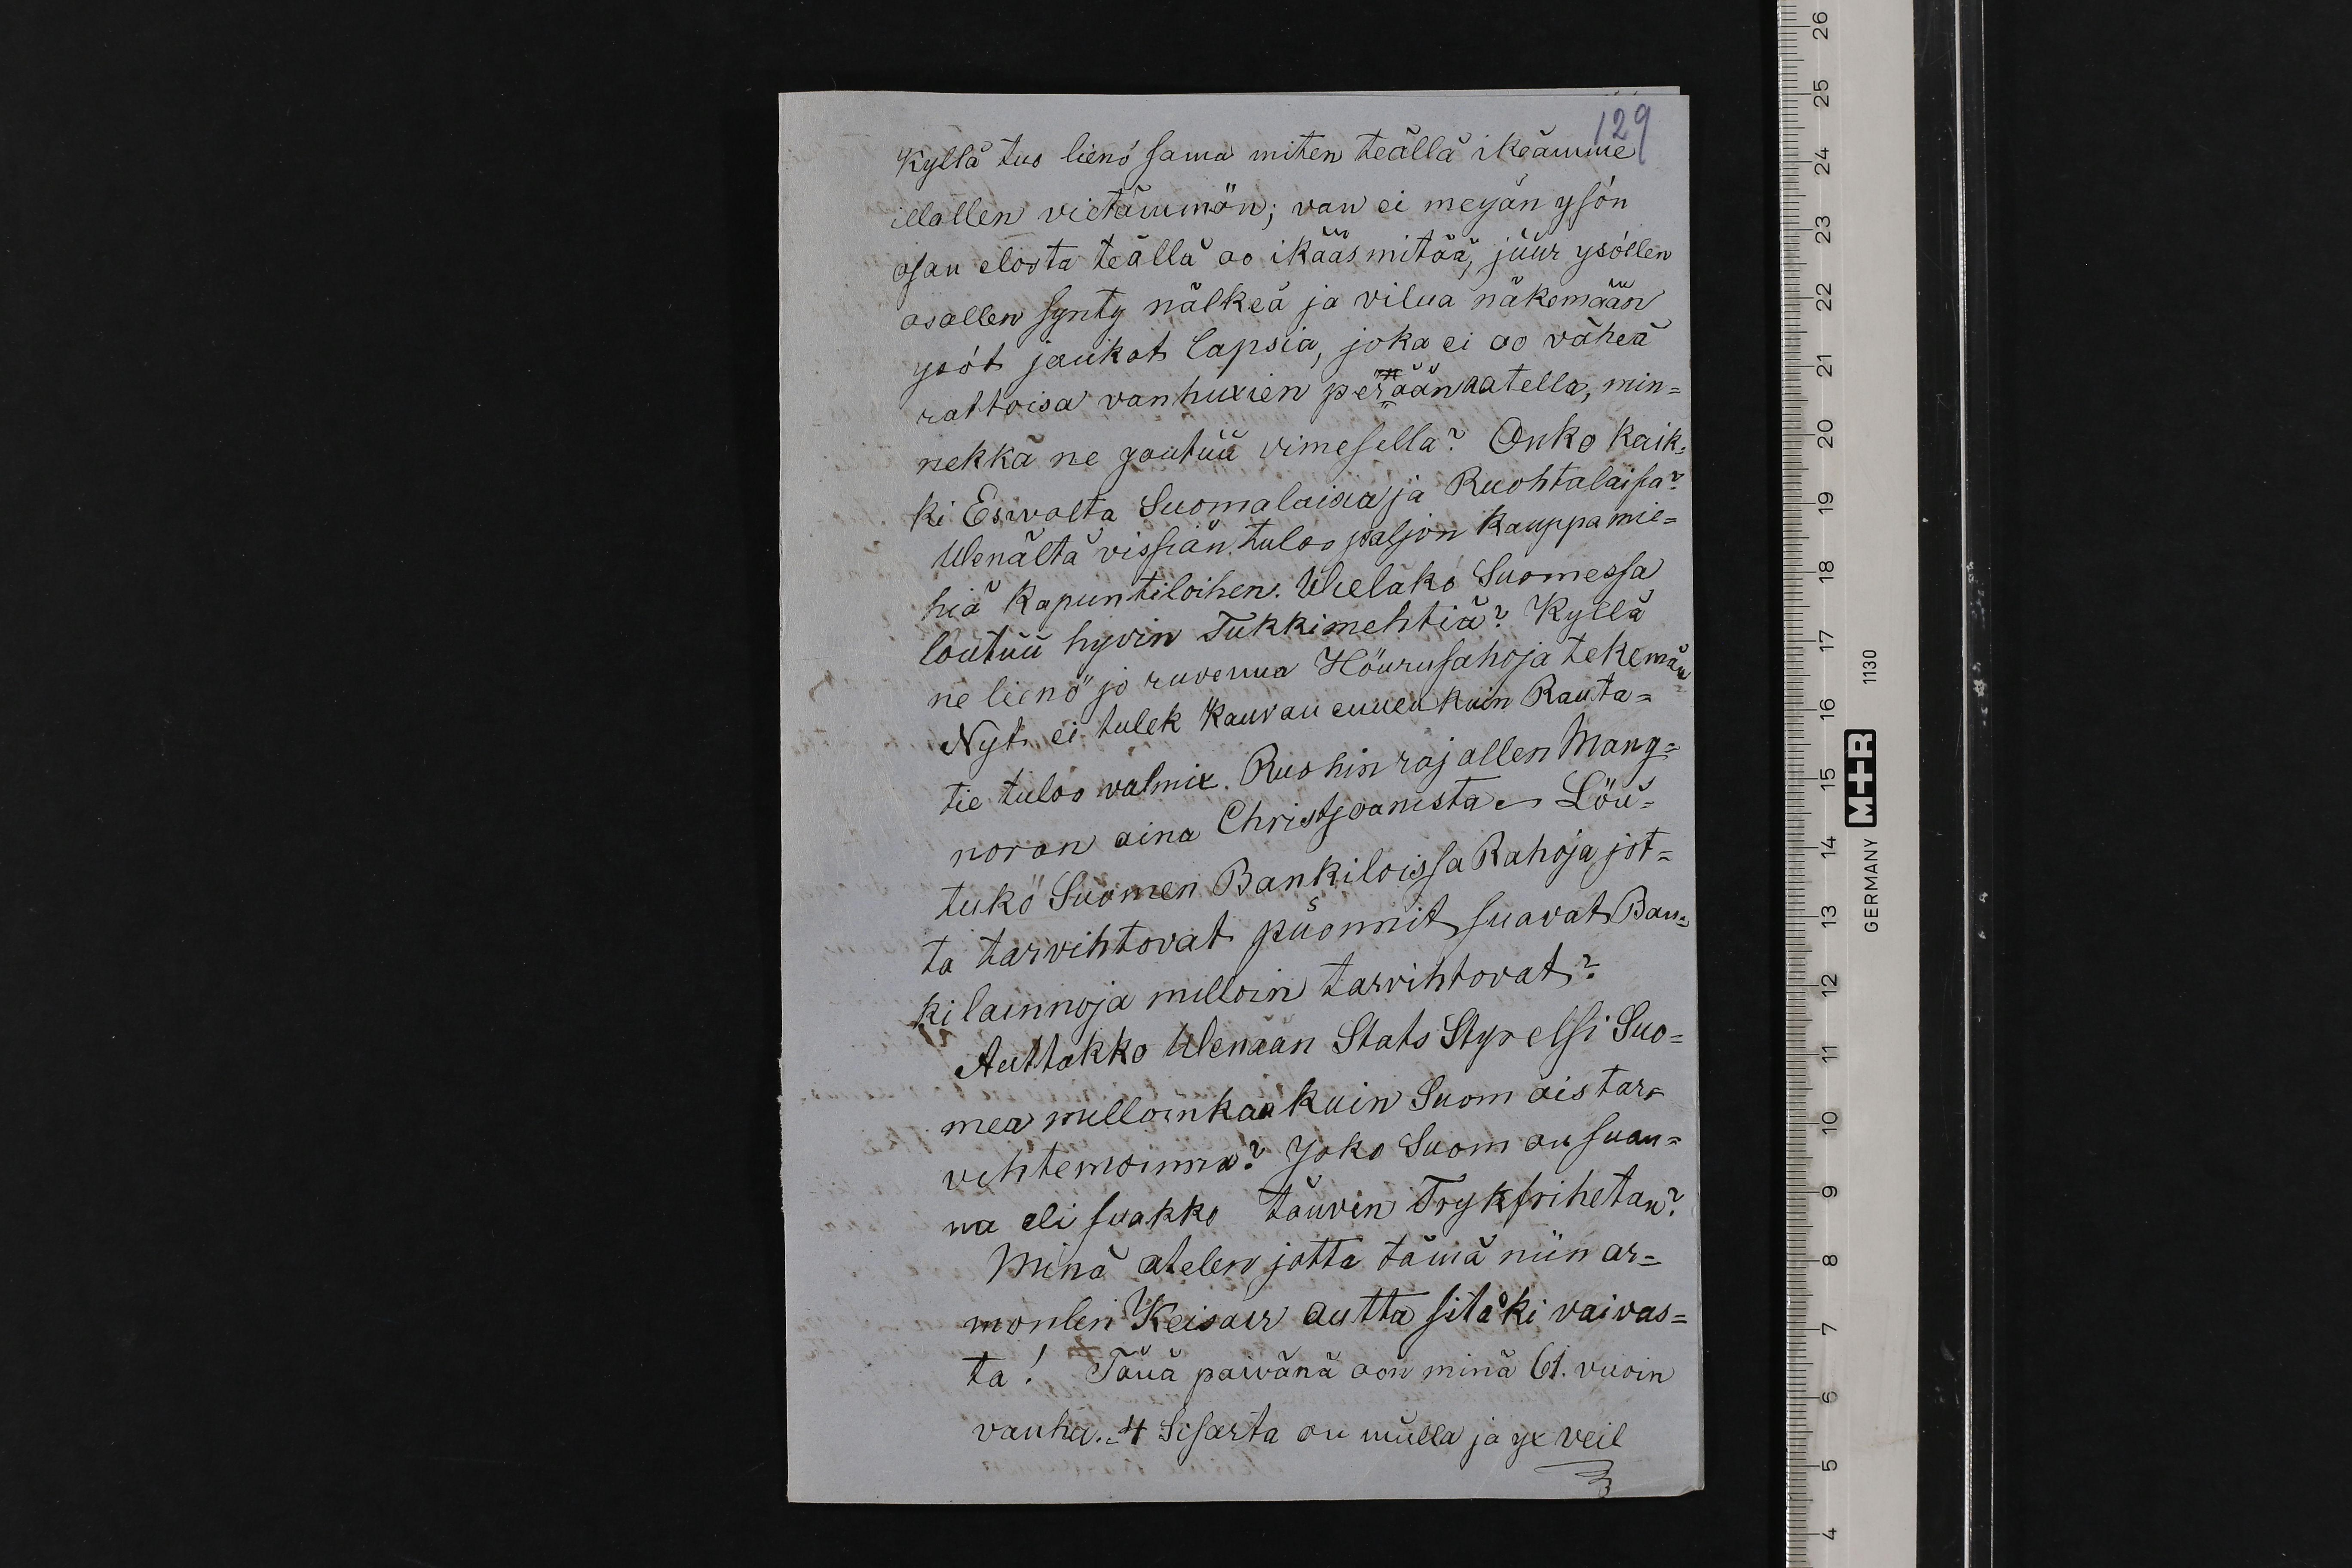 129
Kyllä tuo lienö sama miten teällä ikeämme
illallen vietämmön; van ei meyän ysön
osan elosta teällä oo ikääs mitää, juur ysöllen
osallen synty nälkeä ja vilua näkemään
ysöt jaukot lapsia, joka ei oo väheä
rattoisa vanhuxien perään aatella, min=
nekkä ne joutuu vimesella? Onko kaik=
ki Esivalta Suomalaisia ja Ruohtalaisia?
Wenältä vissiän tuloo paljon kauppamie=
hiä kapuntiloihen. Wieläkö Suomessa
löutuu hyvin Tukkimehtiä? Kyllä
ne lienö jo ruvenna Höurusahoja tekemän
Nyt ei tulek kauvan ennen kuin Rauta=
tie tuloo valmix. Ruohin rajallen Mang=
noron aina Christjoanista. Löu=
tukö Suomen Bankiloissa Rahoja jot=
ta tarvihtovat puonnit suavat Ban=
kilainnoja milloin tarvihtovat?
Auttakko Wenään Stats Styrelsi Suo=
mea milloinkaa kuin Suom ois tar=
vihtemoinna? Joko Suom on suan=
na eli suakko täuven Trykfrihetan?
Minä atelen jotta tämä niin ar=
monlen Keisair autta sitäki vaivas=
ta! Tänä paivänä oon minä 61. vuoin
vanha. 4 Sisarta on mulla ja yx veil